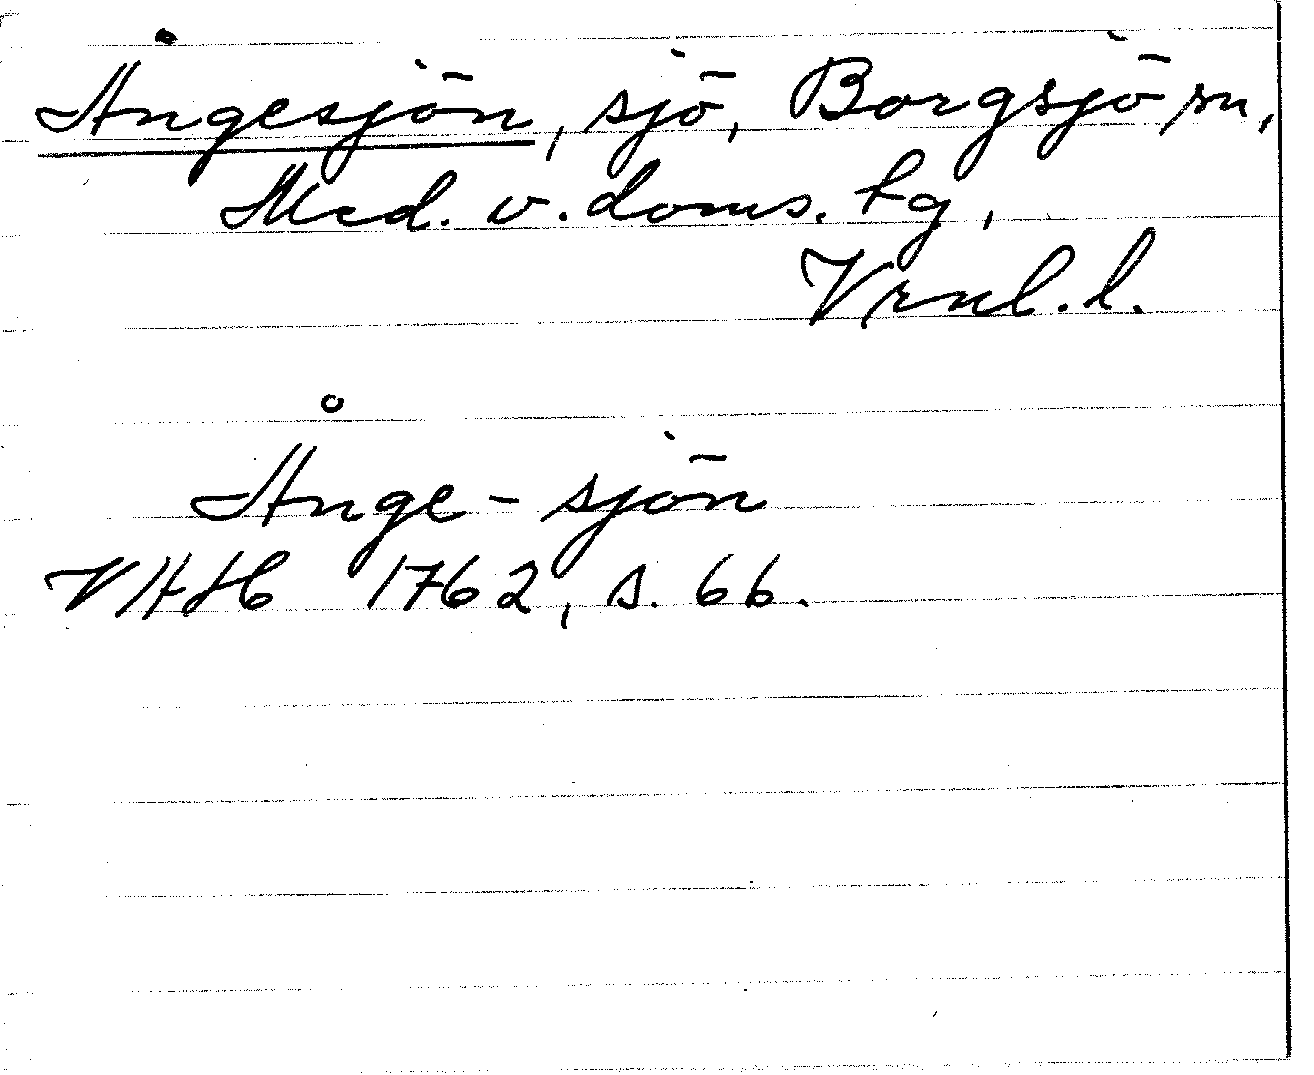 Ångesjön, sjö, Borgsjö sn,
Med. v. doms. tg,
Vrnl. l.
Ånge-sjön
VHAH 1762, s. 66.